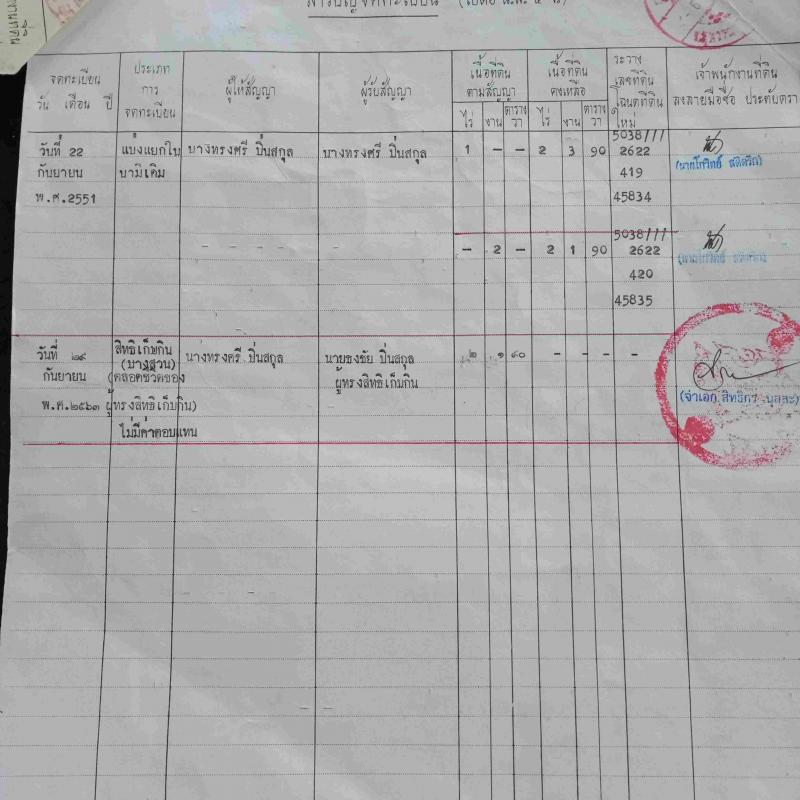 สารบัญจดทะเบียน
จดทะเบียน
วัน เดือน ปี
ประเภท
การ
จดทะเบียน
ผู้ให้สัญญา
ผู้รับสัญญา
เนื้อที่ดิน
ตามสัญญา
ไร่ งาน ตาราง
วา
เนื้อที่ดิน
คงเหลือ
ไร่ งาน ตาราง
วา
ระวาง
เลขที่ดิน
โฉนดที่ดิน
ใหม่
เจ้าพนักงานที่ดิน
ลงลายมือชื่อ ประทับตรา
วันที่ 22
กันยายน
พ.ศ.2551
แบ่งแยกใน
นามเดิม
นางทรงศรี ปิ่นสกุล
นางทรงศรี ปิ่นสกุล
1 – – 2 3 90
5038///
2622
419
45834
– 2 – 2 1 90
5038///
2622
420
45835
วันที่ ๒๙
กันยายน
พ.ศ.๒๕๖๓
สิทธิเก็บกิน
(บางส่วน)
(ตลอดชีวิตของ
ผู้ทรงสิทธิเก็บกิน)
ไม่มีค่าตอบแทน
นางทรงศรี ปิ่นสกุล
นายธงชัย ปิ่นสกุล
ผู้ทรงสิทธิเก็บกิน
๒ ๑ ๙๐ – – – –
(จ่าเอก สิทธิกร